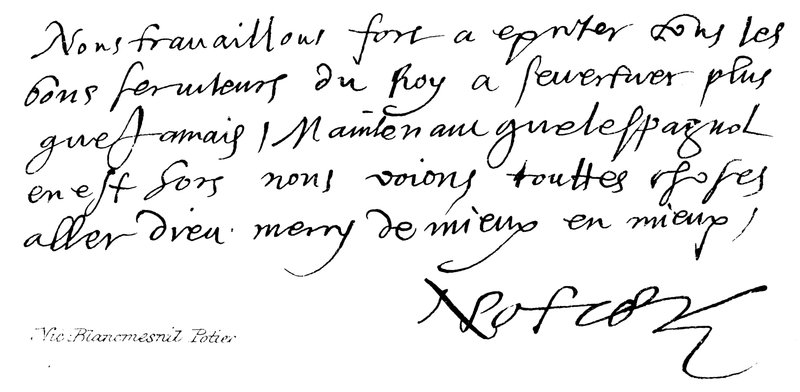 Nous travaillons fort a exciter tous les
bons seruiteurs du Roy a seuertuer plus
que Jamais / Maintenant que lespagnol
en est hors nous voions touttes choses
aller dieu mercy de mieux en mieux /
Potier
Nic. Blancmesnil Potier